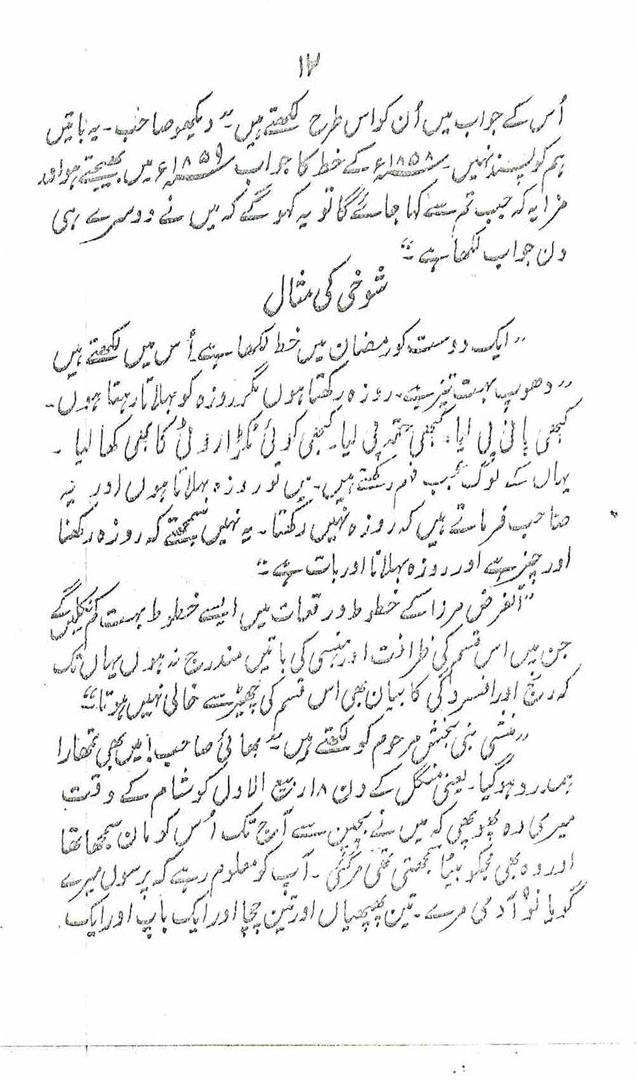 ۱۷
اُس کے جواب میں اُن کو اس طرح لکھتے ہیں۔ "دیکھو صاحب۔ یہ باتیں
ہم کو پسند نہیں۔ ۱۸۵۸ء کے خط کا جواب ۱۸۵۹ء میں بھیجتے ہو اور
مزا یہ کہ جب تم سے کہا جائے گا تو یہ کہو گے کہ میں نے دوسرے ہی
دن جواب لکھا ہے۔"
شوخی کی مثال
"ایک دوست کو رمضان میں خط لکھا ہے اُس میں لکھتے ہیں
"دھوپ بہت تیز ہے۔ روزہ رکھتا ہوں مگر روزہ کو بہلاتا رہتا ہوں۔
کبھی پانی پی لیا، کبھی حقہ پی لیا۔ کبھی کوئی ٹکڑا روٹی کا بھی کھا لیا۔
یہاں کے لوگ عجب فہم رکھتے ہیں۔ میں تو روزہ بہلاتا ہوں اور یہ
صاحب فرماتے ہیں کہ روزہ نہیں رکھتا۔ یہ نہیں سمجھتے کہ روزہ رکھنا
اور چیز ہے اور روزہ بہلانا اور بات ہے۔"
"الغرض مرزا کے خطوط و رقعات میں ایسے خطوط بہت کم نکلیں گے
جن میں اس قسم کی ظرافت اور ہنسی کی باتیں مندرج نہ ہوں یہاں تک
کہ رنج اور افسردگی کا بیان بھی اس قسم کی چھیڑ سے خالی نہیں ہوتا"
"منشی نبی بخش مرحوم کو لکھتے ہیں۔ "بھائی صاحب! میں بھی تمھارا
ہمدرد ہو گیا۔ یعنی منگل کے دن ۱۸ ربیع الاول کو شام کے وقت
میری وہ پھوپھی کہ میں نے بچپن سے آج تک اُس کو ماں سمجھا تھا
اور وہ بھی مجکو بیٹا سمجھتی تھی مر گئی۔ آپ کو معلوم رہے کہ پرسوں میرے
گویا نو آدمی مرے۔ تین پھپھیاں اور تین چچا اور ایک باپ اور ایک